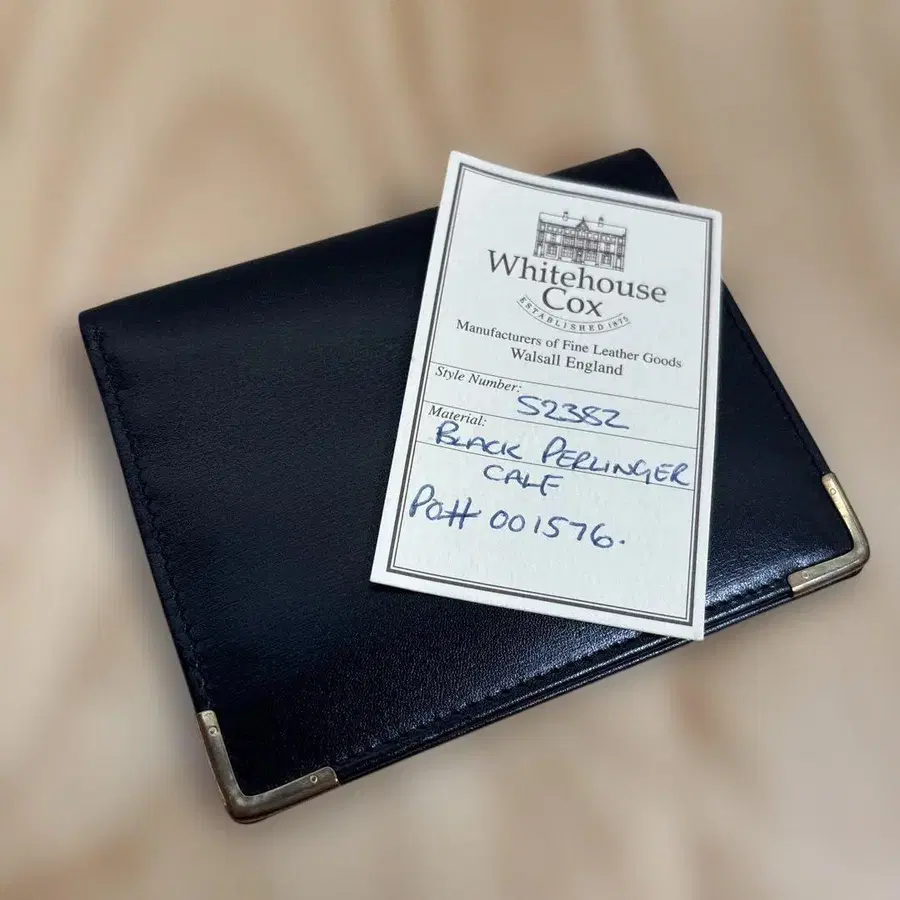 Whitehouse
Cox
ESTABLISHED 1875
Manufacturers of Fine Leather Goods
Walsall England
Style Number:
S2382
Material:
BLACK PERLINGER
CALF
PO# 001576.